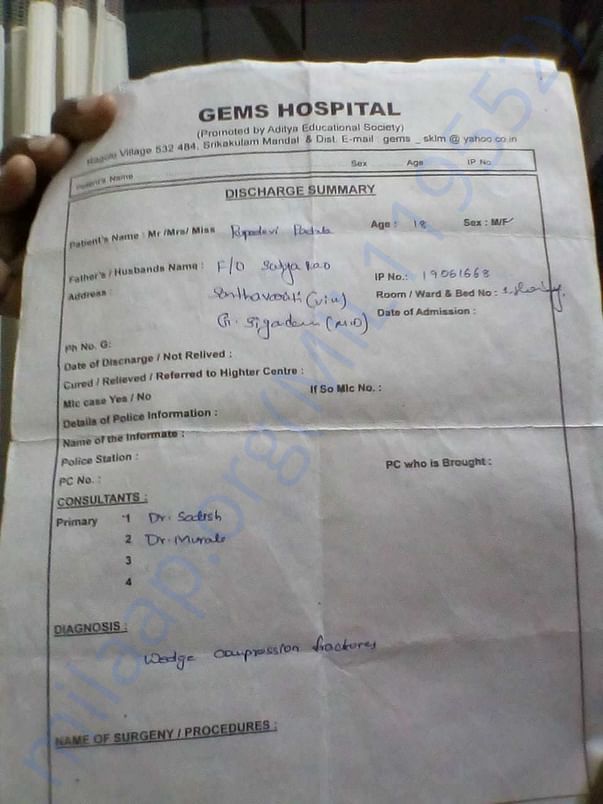 GEMS HOSPITAL
(Promoted by Aditya Educational Society)
Ragolu Village 532 484, Srikakulam Mandal & Dist. E-mail gems _ sklm @ yahoo.co.in
Patient's Name Sex Age IP No
DISCHARGE SUMMARY
Patient's Name : Mr /Mrs/ Miss Rupadevi Padala Age : 18 Sex : M/F
Father's / Husbands Name : F/O Satya Rao IP No.: 19061668
Address : (vill) Room / Ward & Bed No :
G. Sigadam (M.D) Date of Admission :
Ph No. G:
Date of Discharge / Not Relived :
Cured / Relieved / Referred to Highter Centre :
Mlc case Yes / No If So Mlc No. :
Details of Police Information :
Name of the Informate :
Police Station : PC who is Brought :
PC No. :
CONSULTANTS :
Primary 1 Dr. Satish
2 Dr. Murali
3
4
DIAGNOSIS :
Wedge compression fractures
NAME OF SURGENY / PROCEDURES :
milaap.org(Mil119552)